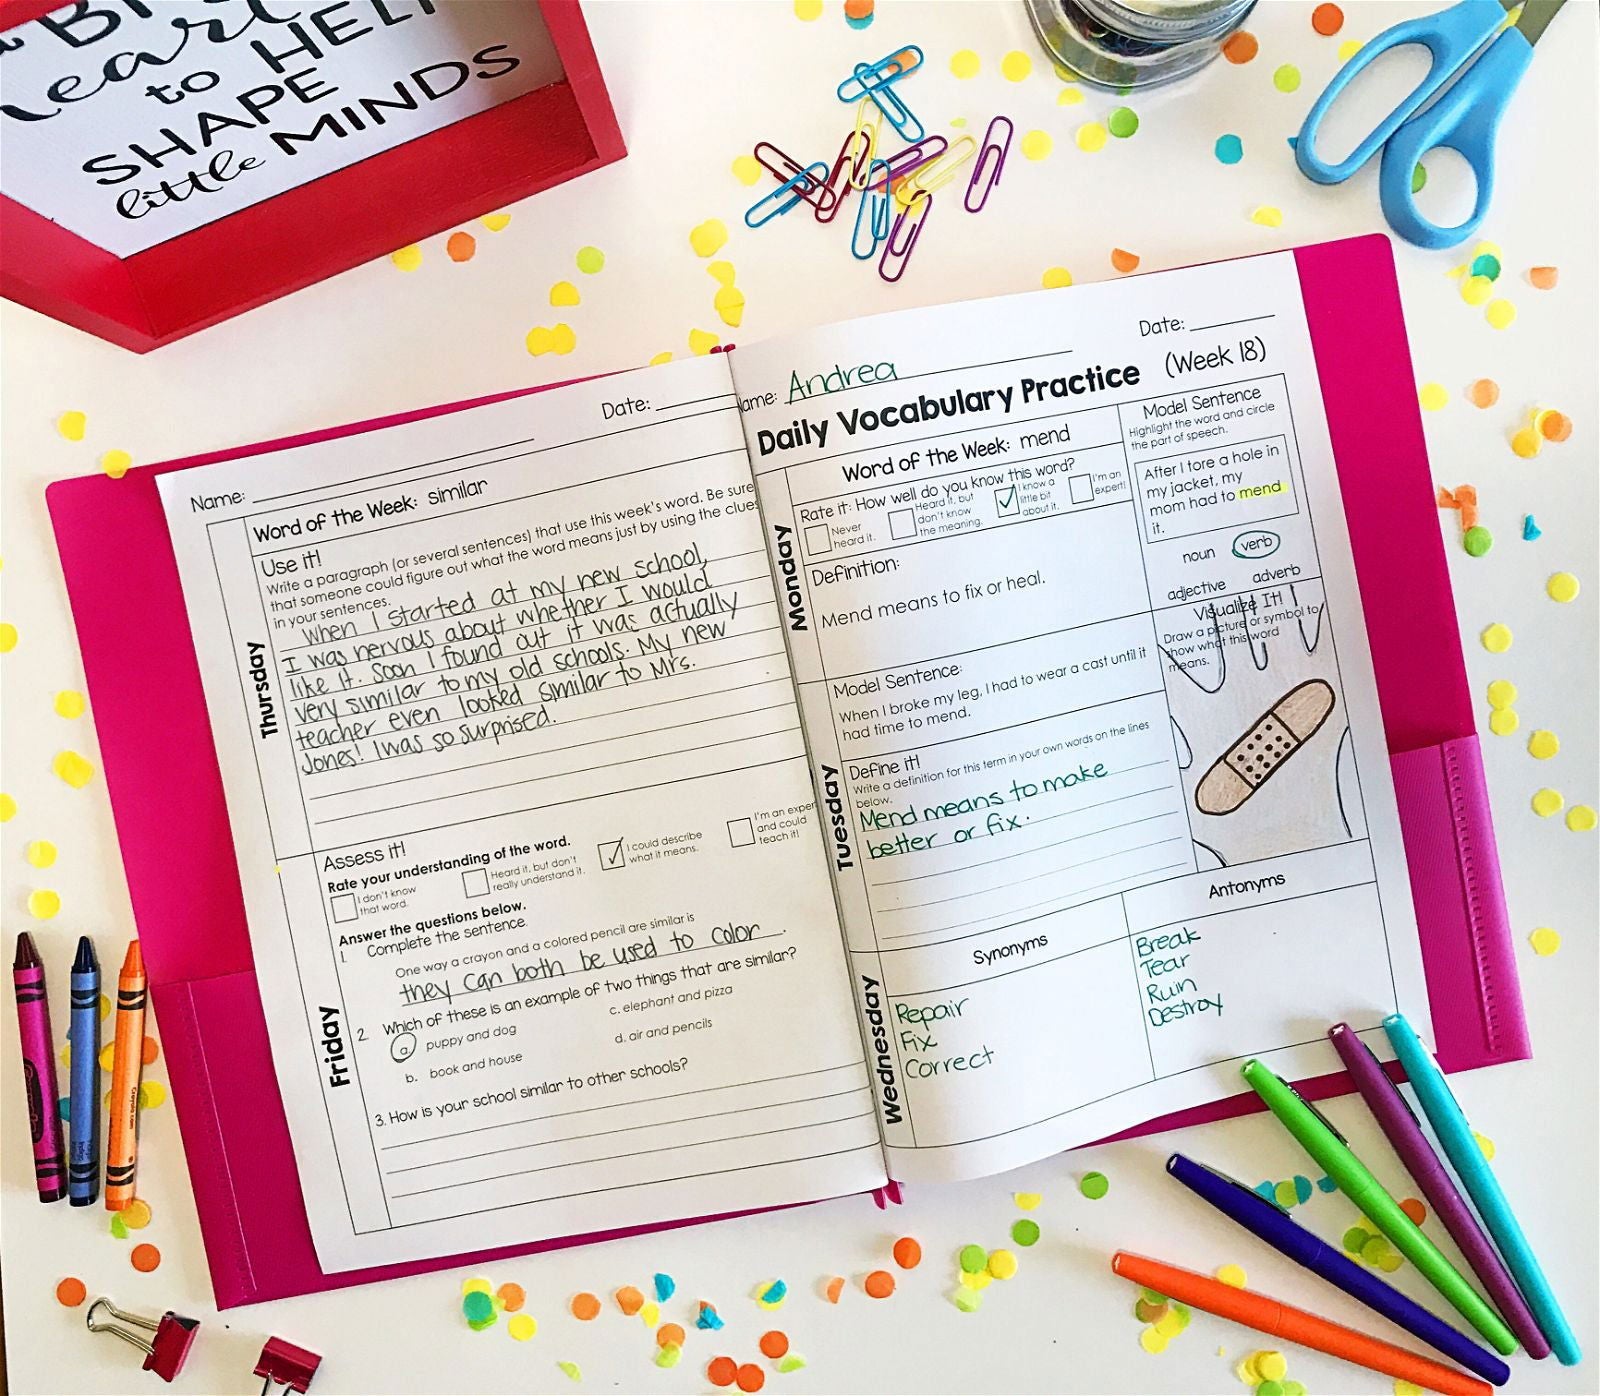 to HELP
SHAPE
little MINDS
Name:
Date:
Word of the Week: similar
Thursday
Use it!
Write a paragraph (or several sentences) that use this week's word. Be sure
that someone could figure out what the word means just by using the clues
in your sentences.
When I started at my new school,
I was nervous about whether I would
like it. Soon I found out it was actually
very similar to my old schools. My new
teacher even looked similar to Mrs.
Jones! I was so surprised.
Friday
Assess it!
Rate your understanding of the word.
I don't know
that word.
Heard it, but don't
really understand it.
I could describe
what it means.
I'm an exper
and could
teach it!
Answer the questions below.
1. Complete the sentence.
One way a crayon and a colored pencil are similar is
they can both be used to color.
2. Which of these is an example of two things that are similar?
a. puppy and dog
c. elephant and pizza
b. book and house
d. air and pencils
3. How is your school similar to other schools?
Date:
Name: Andrea
Daily Vocabulary Practice (Week 18)
Monday
Word of the Week: mend
Rate it: How well do you know this word?
Never
heard it.
Heard it, but
don't know
the meaning.
I know a
little bit
about it.
I'm an
expert!
Definition:
Mend means to fix or heal.
Model Sentence
Highlight the word and circle
the part of speech.
After I tore a hole in
my jacket, my
mom had to mend
it.
noun verb
adjective adverb
Tuesday
Model Sentence:
When I broke my leg, I had to wear a cast until it
had time to mend.
Define it!
Write a definition for this term in your own words on the lines
below.
Mend means to make
better or fix.
Visualize It!
Draw a picture or symbol to
show what this word
means.
Wednesday
Synonyms
Repair
Fix
Correct
Antonyms
Break
Tear
Ruin
Destroy